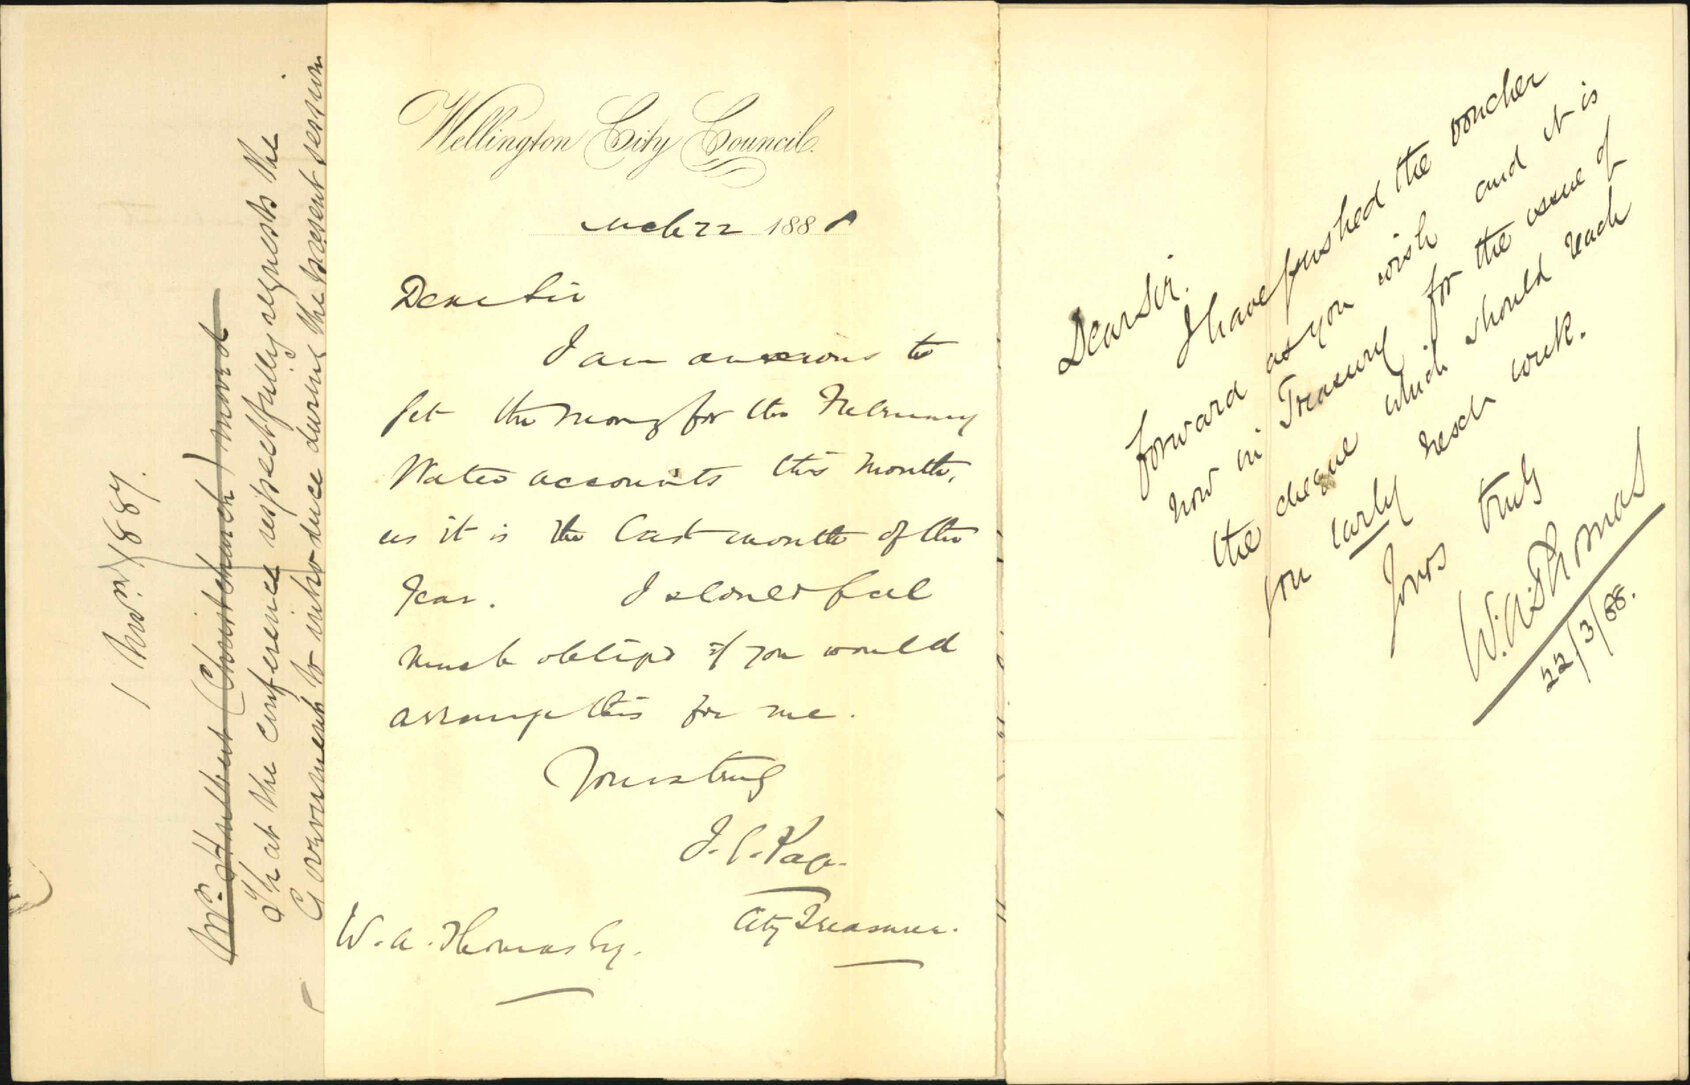 1 Nov. 1887.
Mr. Hulbert (Christchurch) moved
That at the conference respectfully requests the
Government to introduce during the present session
Wellington City Council.
Mch 22 1888
Dear Sir
I am anxious to
get the money for the February
Water accounts this month,
as it is the last month of the
Year. I should feel
much obliged if you would
arrange this for me.
Yours truly
J. C. Page
City Treasurer.
W. A. Thomas Esq.
Dear Sir.
I have pushed the voucher
forward as you wish and it is
now in Treasury for the issue of
the cheque which should reach
you early next week.
Yours truly
W. A. Thomas
22/3/88.